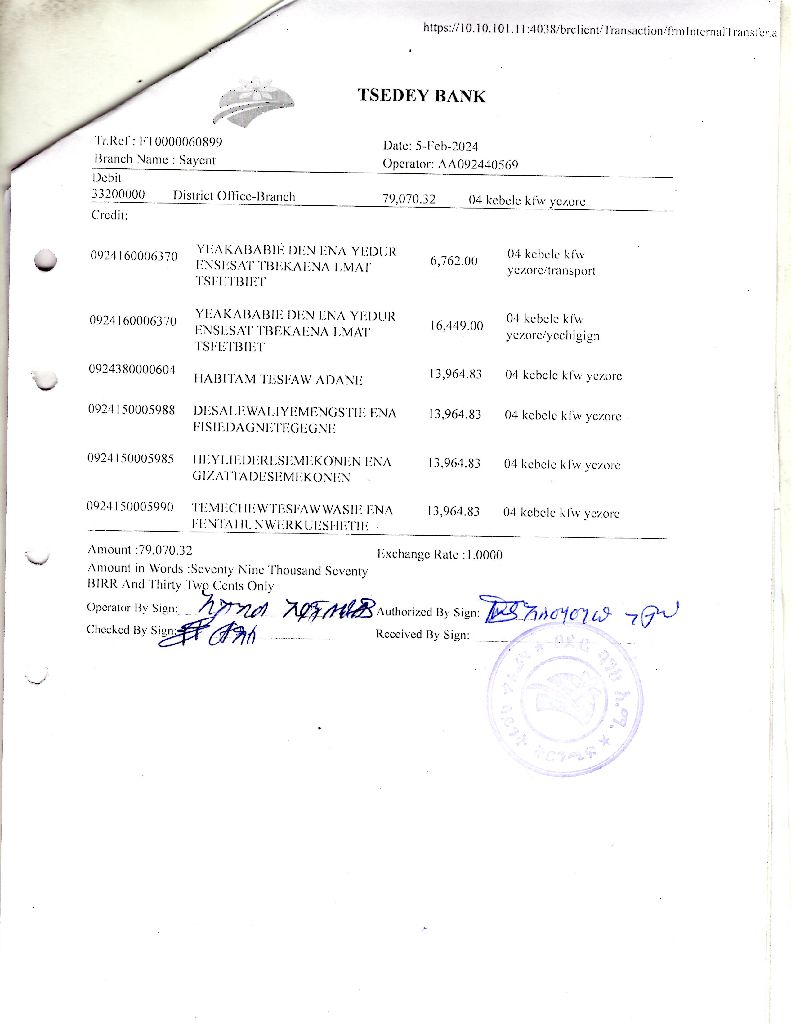 https://10.10.101.11:4038/brclient/Transaction/frmInternalTransfer.a
TSEDEY BANK
Tr.Ref : FT0000060899
Date: 5-Feb-2024
Branch Name : Sayent
Operator: AA092440569
Debit
33200000 District Office-Branch 79,070.32 04 kebele kfw yezore
Credit:
0924160006370 YEAKABABIE DEN ENA YEDUR 6,762.00 04 kebele kfw
ENSESAT TBEKAENA LMAT yezore/transport
TSFETBIET
0924160006370 YEAKABABIE DEN ENA YEDUR 16,449.00 04 kebele kfw
ENSESAT TBEKAENA LMAT yezore/yechigign
TSFETBIET
0924380000604 HABITAM TESFAW ADANE 13,964.83 04 kebele kfw yezore
0924150005988 DESALEWALIYEMENGSTIE ENA 13,964.83 04 kebele kfw yezore
FISIEDAGNETEGEGNE
0924150005985 HEYLIEDERESEMEKONEN ENA 13,964.83 04 kebele kfw yezore
GIZATTADESEMEKONEN
0924150005990 TEMECHEWTESFAWWASIE ENA 13,964.83 04 kebele kfw yezore
FENTAHUNWERKUESHETIE
Amount :79,070.32
Exchange Rate :1.0000
Amount in Words :Seventy Nine Thousand Seventy
BIRR And Thirty Two Cents Only
Operator By Sign:
Authorized By Sign:
Checked By Sign:
Received By Sign: